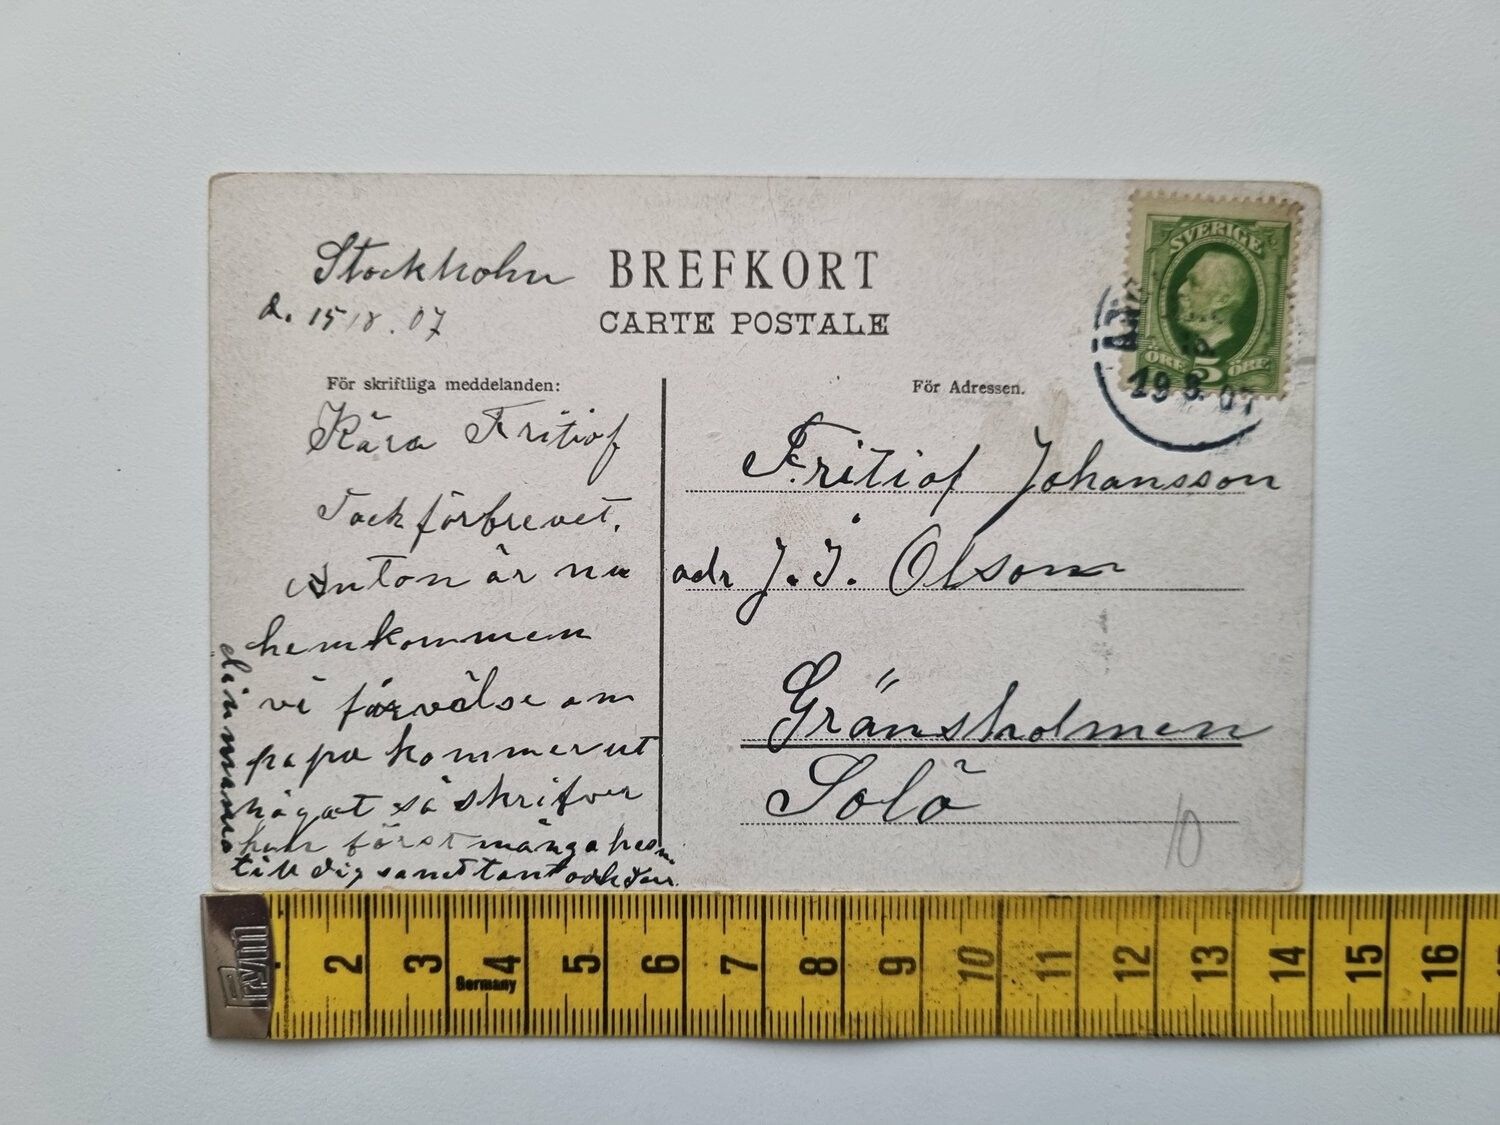 Stockholm
d. 15 18. 07
BREFKORT
CARTE POSTALE
SVERIGE
ÖRE 5 ÖRE
19 8. 07
För skriftliga meddelanden:
För Adressen.
Kära Fritiof
Tack förbrevet.
Anton är nu
hemkommen
vi förvälse om
papa kommer ut
något så skrifver
han först många hes
till dig samt tant och
din mama
Fritiof Johansson
adr J. J. Olsom
Gränsholmen
Solö
10
2 3 4 5 6 7 8 9 10 11 12 13 14 15 16
Germany